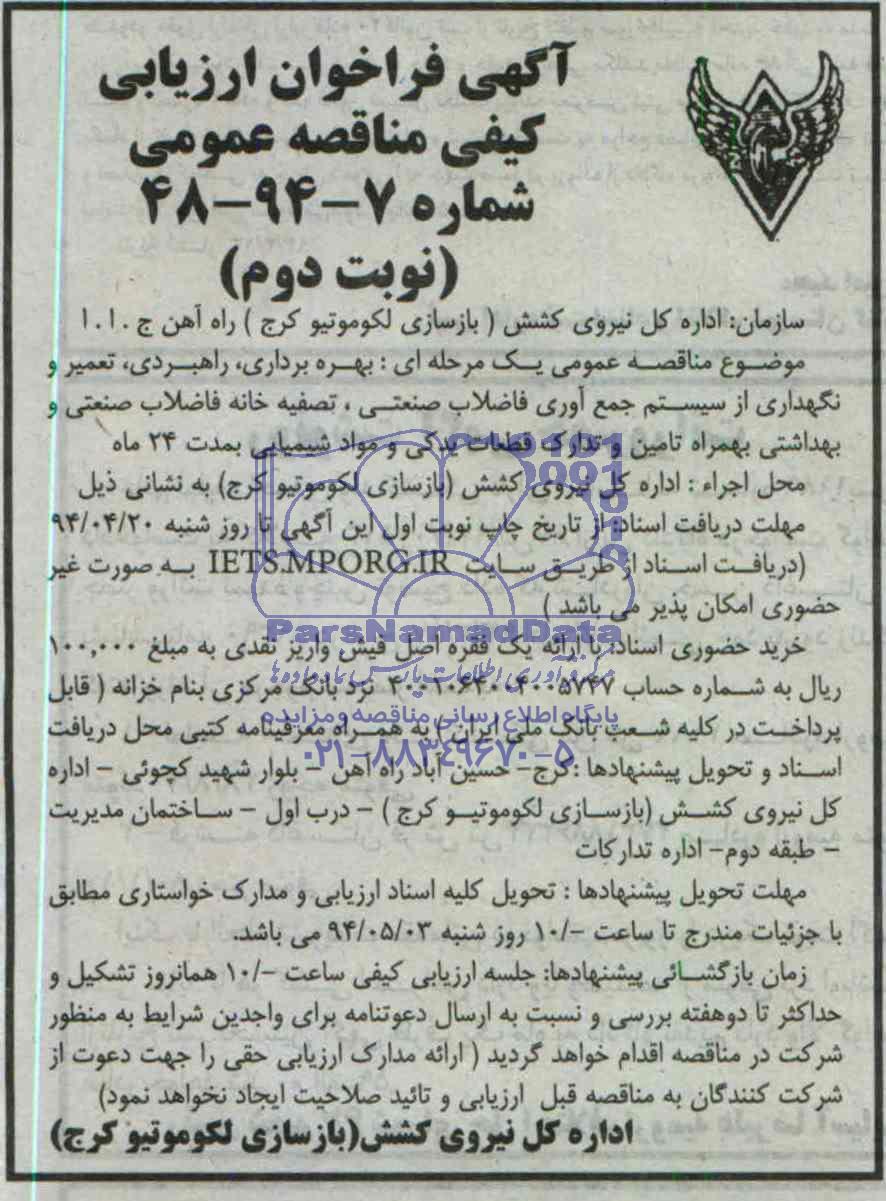 آگهی فراخوان ارزیابی
کیفی مناقصه عمومی
شماره ۷-۹۴-۴۸
(نوبت دوم)
سازمان: اداره کل نیروی کشش ( بازسازی لکوموتیو کرج ) راه آهن ج .۱.۱
موضوع مناقصه عمومی یک مرحله ای : بهره برداری، راهبردی، تعمیر و
نگهداری از سیستم جمع آوری فاضلاب صنعتی ، تصفیه خانه فاضلاب صنعتی و
بهداشتی بهمراه تامین و تدارک قطعات یدکی و مواد شیمیایی بمدت ۲۴ ماه
محل اجراء : اداره کل نیروی کشش (بازسازی لکوموتیو کرج) به نشانی ذیل
مهلت دریافت اسناد: از تاریخ چاپ نوبت اول این آگهی تا روز شنبه ۹۴/۰۴/۲۰
(دریافت اسناد از طریق سایت IETS.MPORG.IR به صورت غیر
حضوری امکان پذیر می باشد )
ParsNamadData
خرید حضوری اسناد: با ارائه یک فقره اصل فیش واریز نقدی به مبلغ ۱۰۰,۰۰۰
مرکز فرآوری اطلاعات پارس نماد داده ها
ریال به شماره حساب نزد بانک مرکزی بنام خزانه ( قابل
پایگاه اطلاع رسانی مناقصه و مزایده
پرداخت در کلیه شعب بانک ملی ایران ) به همراه معرفینامه کتبی محل دریافت
۰۲۱-۸۸۳۴۹۶۷۰-۵
اسناد و تحویل پیشنهادها :کرج- حسین آباد راه آهن - بلوار شهید کچوئی - اداره
کل نیروی کشش (بازسازی لکوموتیو کرج ) - درب اول - ساختمان مدیریت
- طبقه دوم- اداره تدارکات
مهلت تحویل پیشنهادها : تحویل کلیه اسناد ارزیابی و مدارک خواستاری مطابق
با جزئیات مندرج تا ساعت -/۱۰ روز شنبه ۹۴/۰۵/۰۳ می باشد.
زمان بازگشائی پیشنهادها: جلسه ارزیابی کیفی ساعت -/۱۰ همانروز تشکیل و
حداکثر تا دوهفته بررسی و نسبت به ارسال دعوتنامه برای واجدین شرایط به منظور
شرکت در مناقصه اقدام خواهد گردید ( ارائه مدارک ارزیابی حقی را جهت دعوت از
شرکت کنندگان به مناقصه قبل ارزیابی و تائید صلاحیت ایجاد نخواهد نمود)
اداره کل نیروی کشش(بازسازی لکوموتیو کرج)